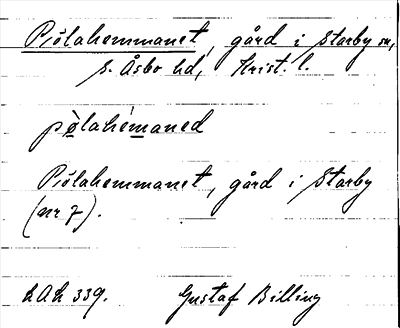 Pölahemmanet, gård i Starby sn,
S. Åsbo hd, Krist. l.
pòlahémaned
Pölahemmanet, gård i Starby
(nr 7).
LAL 339. Gustaf Billing